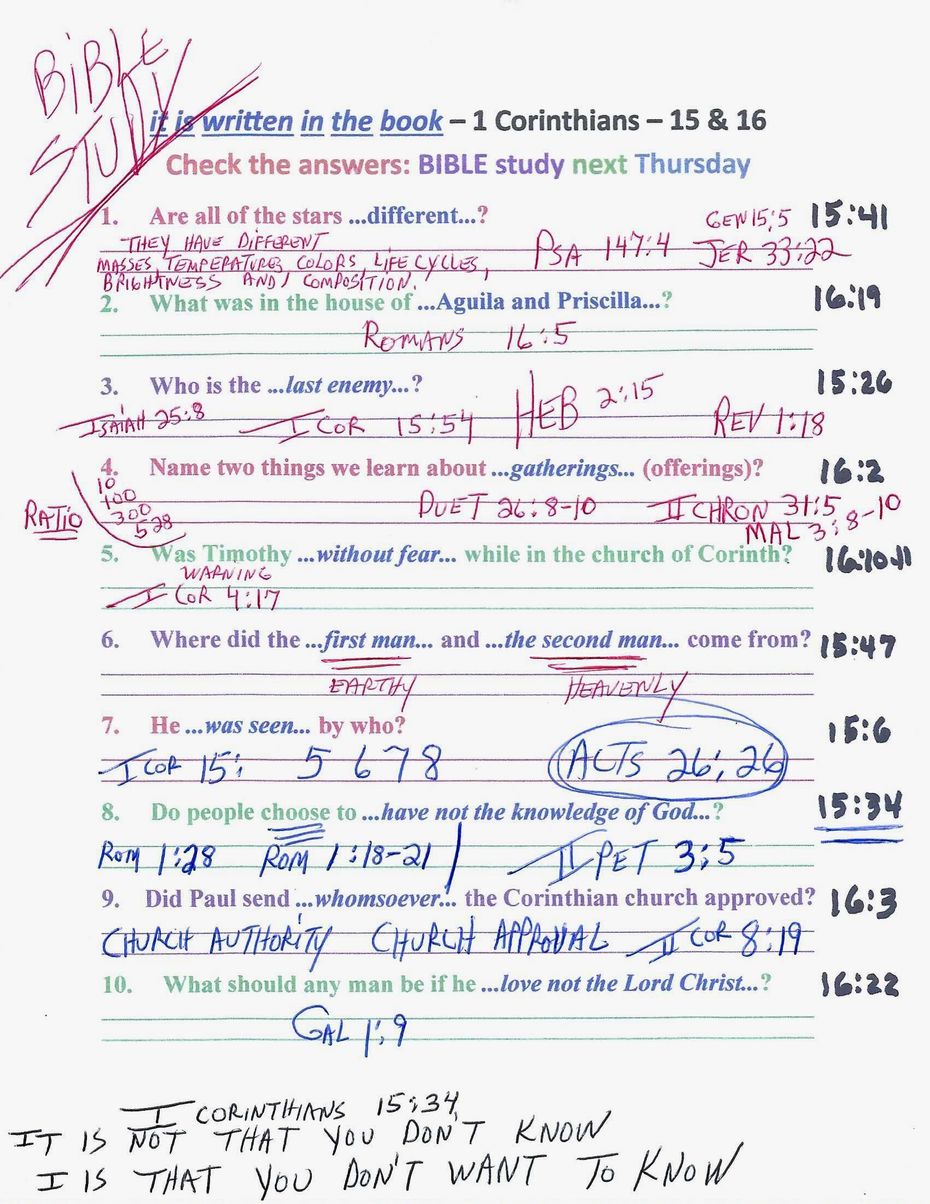 BIBLE
STUDY
it is written in the book – 1 Corinthians – 15 & 16
Check the answers: BIBLE study next Thursday
1. Are all of the stars ...different...? GEN 15:5 15:41
THEY HAVE DIFFERENT
MASSES, TEMPERATURES, COLORS, LIFE CYCLES, PSA 147:4 JER 33:22
BRIGHTNESS AND COMPOSITION.
2. What was in the house of ...Aguila and Priscilla...? 16:19
ROMANS 16:5
3. Who is the ...last enemy...? 15:26
ISAIAH 25:8 I COR 15:54 HEB 2:15 REV 1:18
4. Name two things we learn about ...gatherings... (offerings)? 16:2
10
100
300
528
RATIO
DUET 26:8-10 II CHRON 31:5
MAL 3:8-10
5. Was Timothy ...without fear... while in the church of Corinth? 16:10-11
WARNING
I COR 4:17
6. Where did the ...first man... and ...the second man... come from? 15:47
EARTHY HEAVENLY
7. He ...was seen... by who? 15:6
I COR 15: 5 6 7 8 ACTS 26:26
8. Do people choose to ...have not the knowledge of God...? 15:34
ROM 1:28 ROM 1:18-21 II PET 3:5
9. Did Paul send ...whomsoever... the Corinthian church approved? 16:3
CHURCH AUTHORITY CHURCH APPROVAL II COR 8:19
10. What should any man be if he ...love not the Lord Christ...? 16:22
GAL 1:9
I CORINTHIANS 15:34
IT IS NOT THAT YOU DON'T KNOW
I IS THAT YOU DON'T WANT TO KNOW